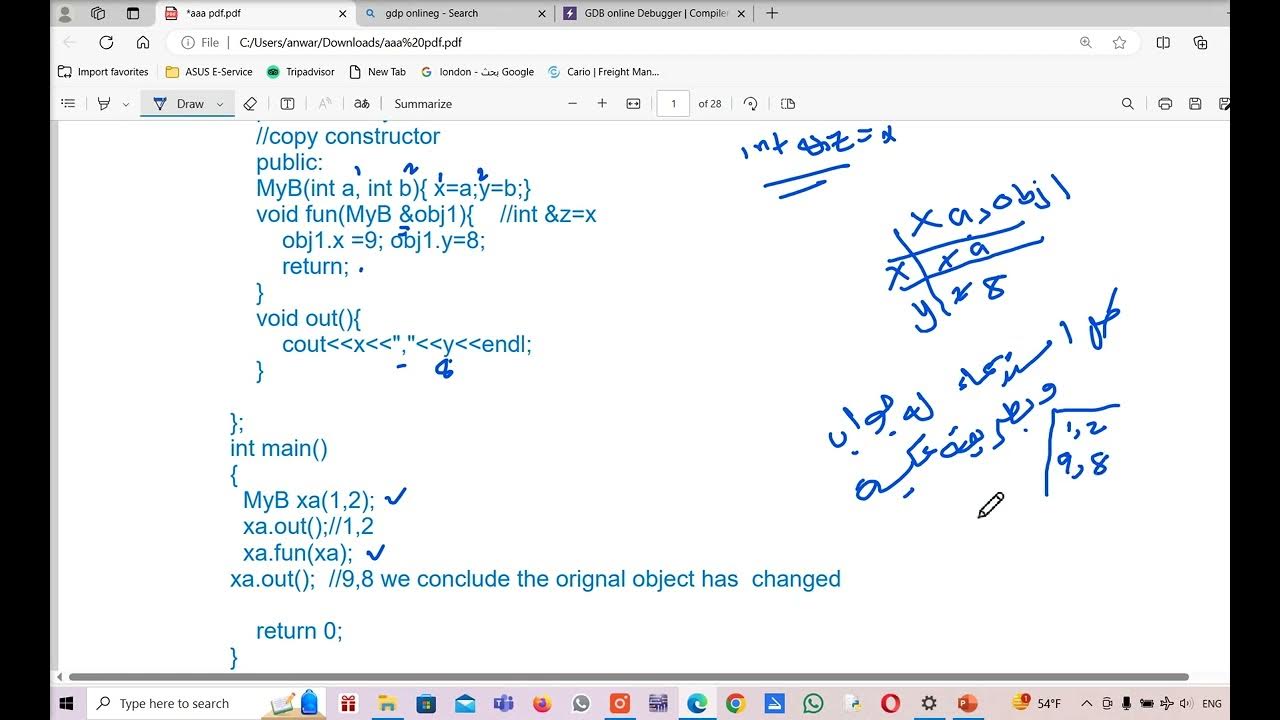 *aaa pdf.pdf
gdp onlineg - Search
GDB online Debugger | Compiler
File
C:/Users/anwar/Downloads/aaa%20pdf.pdf
Import favorites
ASUS E-Service
Tripadvisor
New Tab
london - بحث Google
Cario | Freight Man...
Draw
aあ
Summarize
1 of 28
//copy constructor
public:
1 2 1 2
MyB(int a, int b){ x=a;y=b;}
void fun(MyB &obj1){ //int &z=x
obj1.x =9; obj1.y=8;
return;
}
void out(){
cout<<x<<","<<y<<endl;
8
}
};
int main()
{
MyB xa(1,2);
xa.out();//1,2
xa.fun(xa);
xa.out(); //9,8 we conclude the orignal object has changed
return 0;
}
xa,obj1
x
y 8
1,2
9,8
Type here to search
1
54°F
ENG